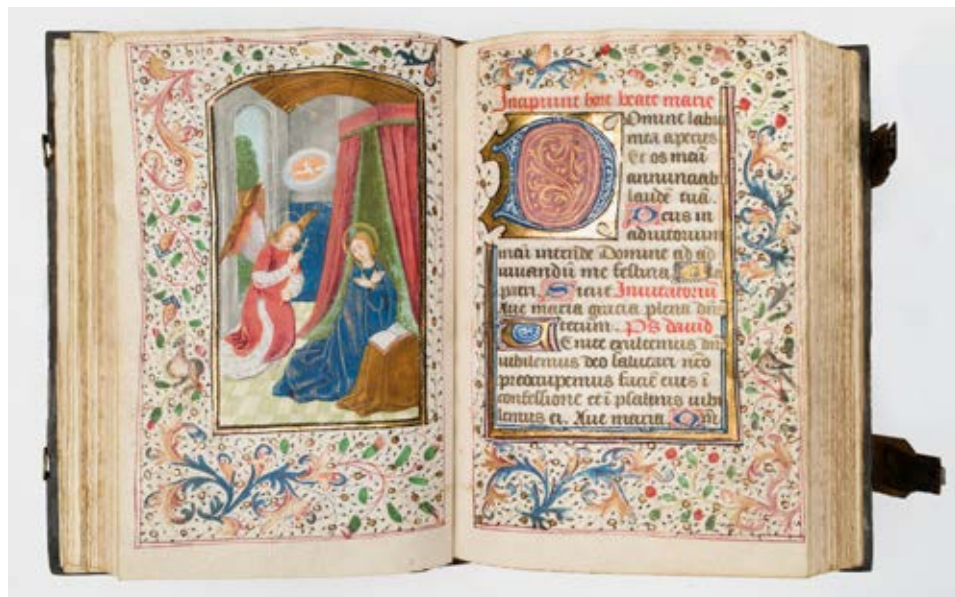 Incipiunt hore beate marie
Domine labia
mea aperies
Et os meū
annunciab
laudē tuā.
Deus in
adiutorium
meū intende Domine ad ad
iuuandū me festina Glia
patri Sicut Inuitatoriū
Aue maria gracia plena dns
tecum. Ps dauid
Uenite exultemus dn̄o
iubilemus deo salutari nr̄o
preoccupemus faciē eius ī
confessione et ī psalmis iubi
lemus ei. Aue maria